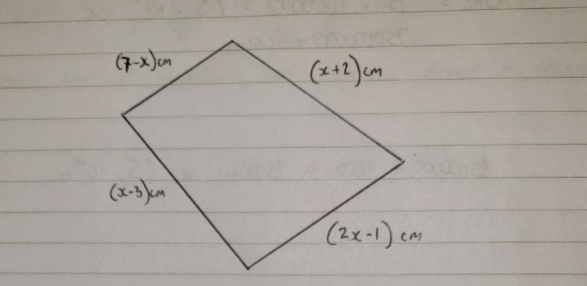 (7-x)cm
(x+2)cm
(x-3)cm
(2x-1) cm